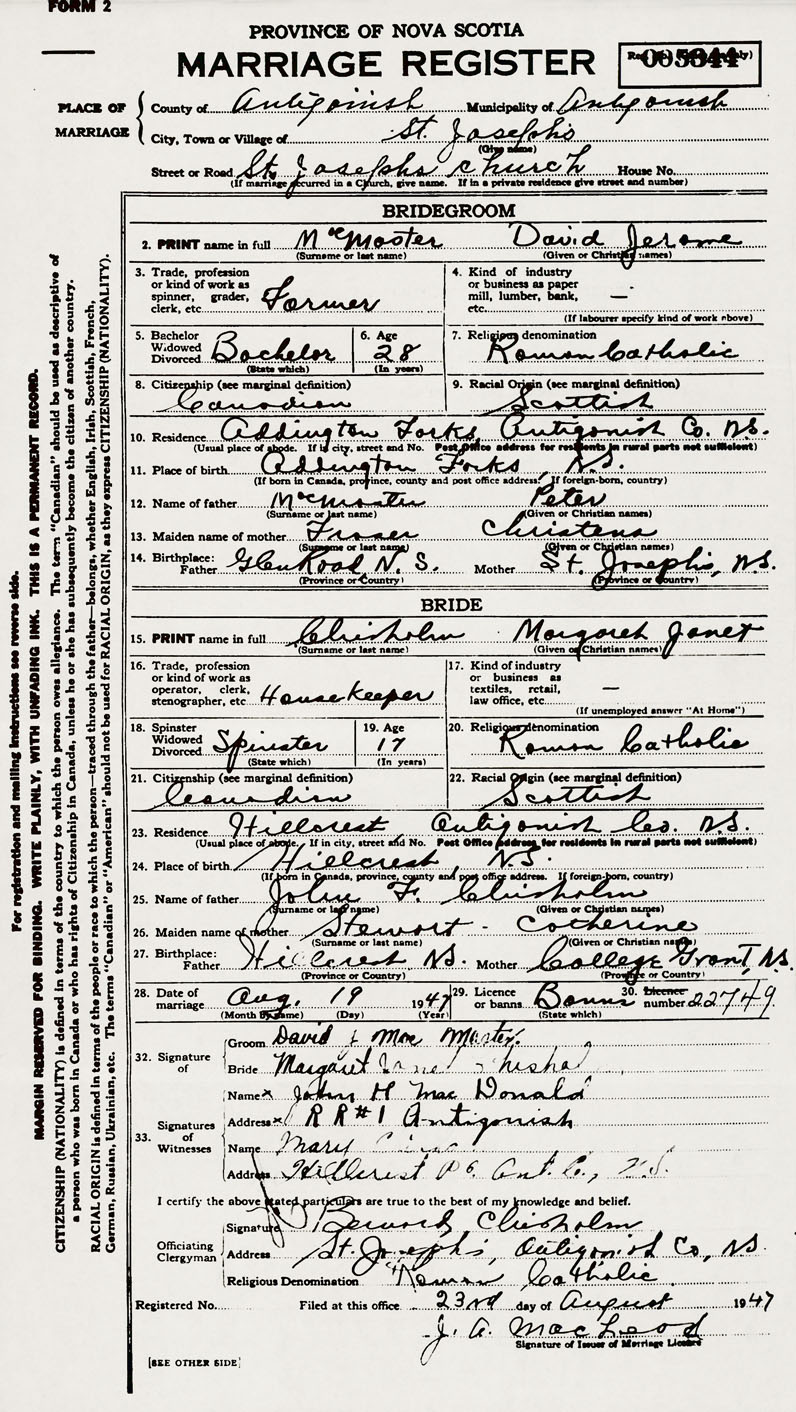 FORM 2
PROVINCE OF NOVA SCOTIA
MARRIAGE REGISTER
005344
PLACE OF MARRIAGE
County of Antigonish Municipality of Antigonish
City, Town or Village of St. Josephs
(Give name)
Street or Road St. Josephs Church House No.
(If marriage occurred in a Church, give name. If in a private residence give street and number)
BRIDEGROOM
2. PRINT name in full McMaster David Jerome
(Surname or last name) (Given or Christian names)
3. Trade, profession or kind of work as spinner, grader, clerk, etc. Farmer
4. Kind of industry or business as paper mill, lumber, bank, etc. —
(If labourer specify kind of work above)
5. Bachelor Widowed Divorced Bachelor
(State which)
6. Age 28
(In years)
7. Religious denomination Roman Catholic
8. Citizenship (see marginal definition) Canadian
9. Racial Origin (see marginal definition) Scottish
10. Residence Addington Forks Antigonish Co. N.S.
(Usual place of abode. If in city, street and No. Post Office address for residents in rural parts not sufficient)
11. Place of birth Addington Forks, N.S.
(If born in Canada, province, county and post office address. If foreign-born, country)
12. Name of father McMaster Peter
(Surname or last name) (Given or Christian names)
13. Maiden name of mother Fraser Christena
(Surname or last name) (Given or Christian names)
14. Birthplace: Father Glen Road N.S. Mother St. Josephs, N.S.
(Province or Country) (Province or Country)
BRIDE
15. PRINT name in full Chisholm Margaret Janet
(Surname or last name) (Given or Christian names)
16. Trade, profession or kind of work as operator, clerk, stenographer, etc Housekeeper
17. Kind of industry or business as textiles, retail, law office, etc. —
(If unemployed answer "At Home")
18. Spinster Widowed Divorced Spinster
(State which)
19. Age 17
(In years)
20. Religious denomination Roman Catholic
21. Citizenship (see marginal definition) Canadian
22. Racial Origin (see marginal definition) Scottish
23. Residence Hillcrest, Antigonish Co. N.S.
(Usual place of abode. If in city, street and No. Post Office address for residents in rural parts not sufficient)
24. Place of birth Hillcrest, N.S.
(If born in Canada, province, county and post office address. If foreign-born, country)
25. Name of father John F. Chisholm
(Surname or last name) (Given or Christian names)
26. Maiden name of mother Stewart - Catherine
(Surname or last name) (Given or Christian name)
27. Birthplace: Father Hillcrest N.S. Mother College Grant, N.S.
(Province or Country) (Province or Country)
28. Date of marriage Aug. 19 1947
(Month by name) (Day) (Year)
29. Licence or banns Banns
(State which)
30. Licence number 22749
32. Signature of
Groom David J Mac Master.
Bride Margaret
33. Signatures of Witnesses
Name x John H Mac Donald
Address x RR#1 Antigonish
Name Mary
Address Hillcrest P.O. Ant. Co., N.S.
I certify the above stated particulars are true to the best of my knowledge and belief.
Officiating Clergyman
Signature Chisholm
Address St. Josephs, Antigonish Co, N.S.
Religious Denomination Roman Catholic
Registered No. Filed at this office 23rd day of August 1947
J. A. MacLeod
Signature of Issuer of Marriage Licence
[SEE OTHER SIDE]
For registration and mailing instructions see reverse side.
MARGIN RESERVED FOR BINDING. WRITE PLAINLY, WITH UNFADING INK. THIS IS A PERMANENT RECORD.
CITIZENSHIP (NATIONALITY) is defined in terms of the country to which the person owes allegiance. The term "Canadian" should be used as descriptive of
a person who was born in Canada or who has rights of Citizenship in Canada, unless he or she has subsequently become the citizen of another country.
RACIAL ORIGIN is defined in terms of the people or race to which the person—traced through the father—belongs, whether English, Irish, Scottish, French,
German, Russian, Ukrainian, etc. The terms "Canadian" or "American" should not be used for RACIAL ORIGIN, as they express CITIZENSHIP (NATIONALITY).